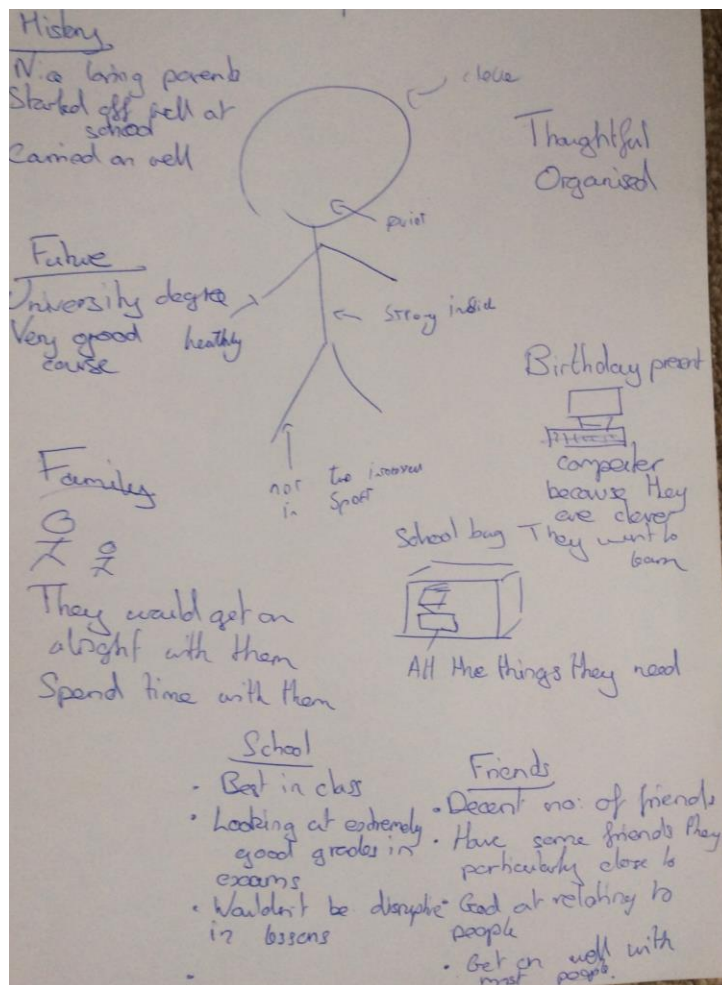 History
Nice loving parents
Started off well at
school
Carried on well
Thoughtful
Organised
quiet
Future
University degree
Very good
course
heathly
strong inside
Birthday present
computer
because they
are clever
They want to
learn
Family
not too
in Sport
School bag
They would get on
alright with them
Spend time with them
All the things they need
School
• Best in class
• Looking at extremely
good grades in
exams
• Wouldn't be disruptive
in lessons
•
Friends
• Decent no: of friends
• Have some friends they
particularly close to
• Good at relating to
people
• Get on well with
most people.